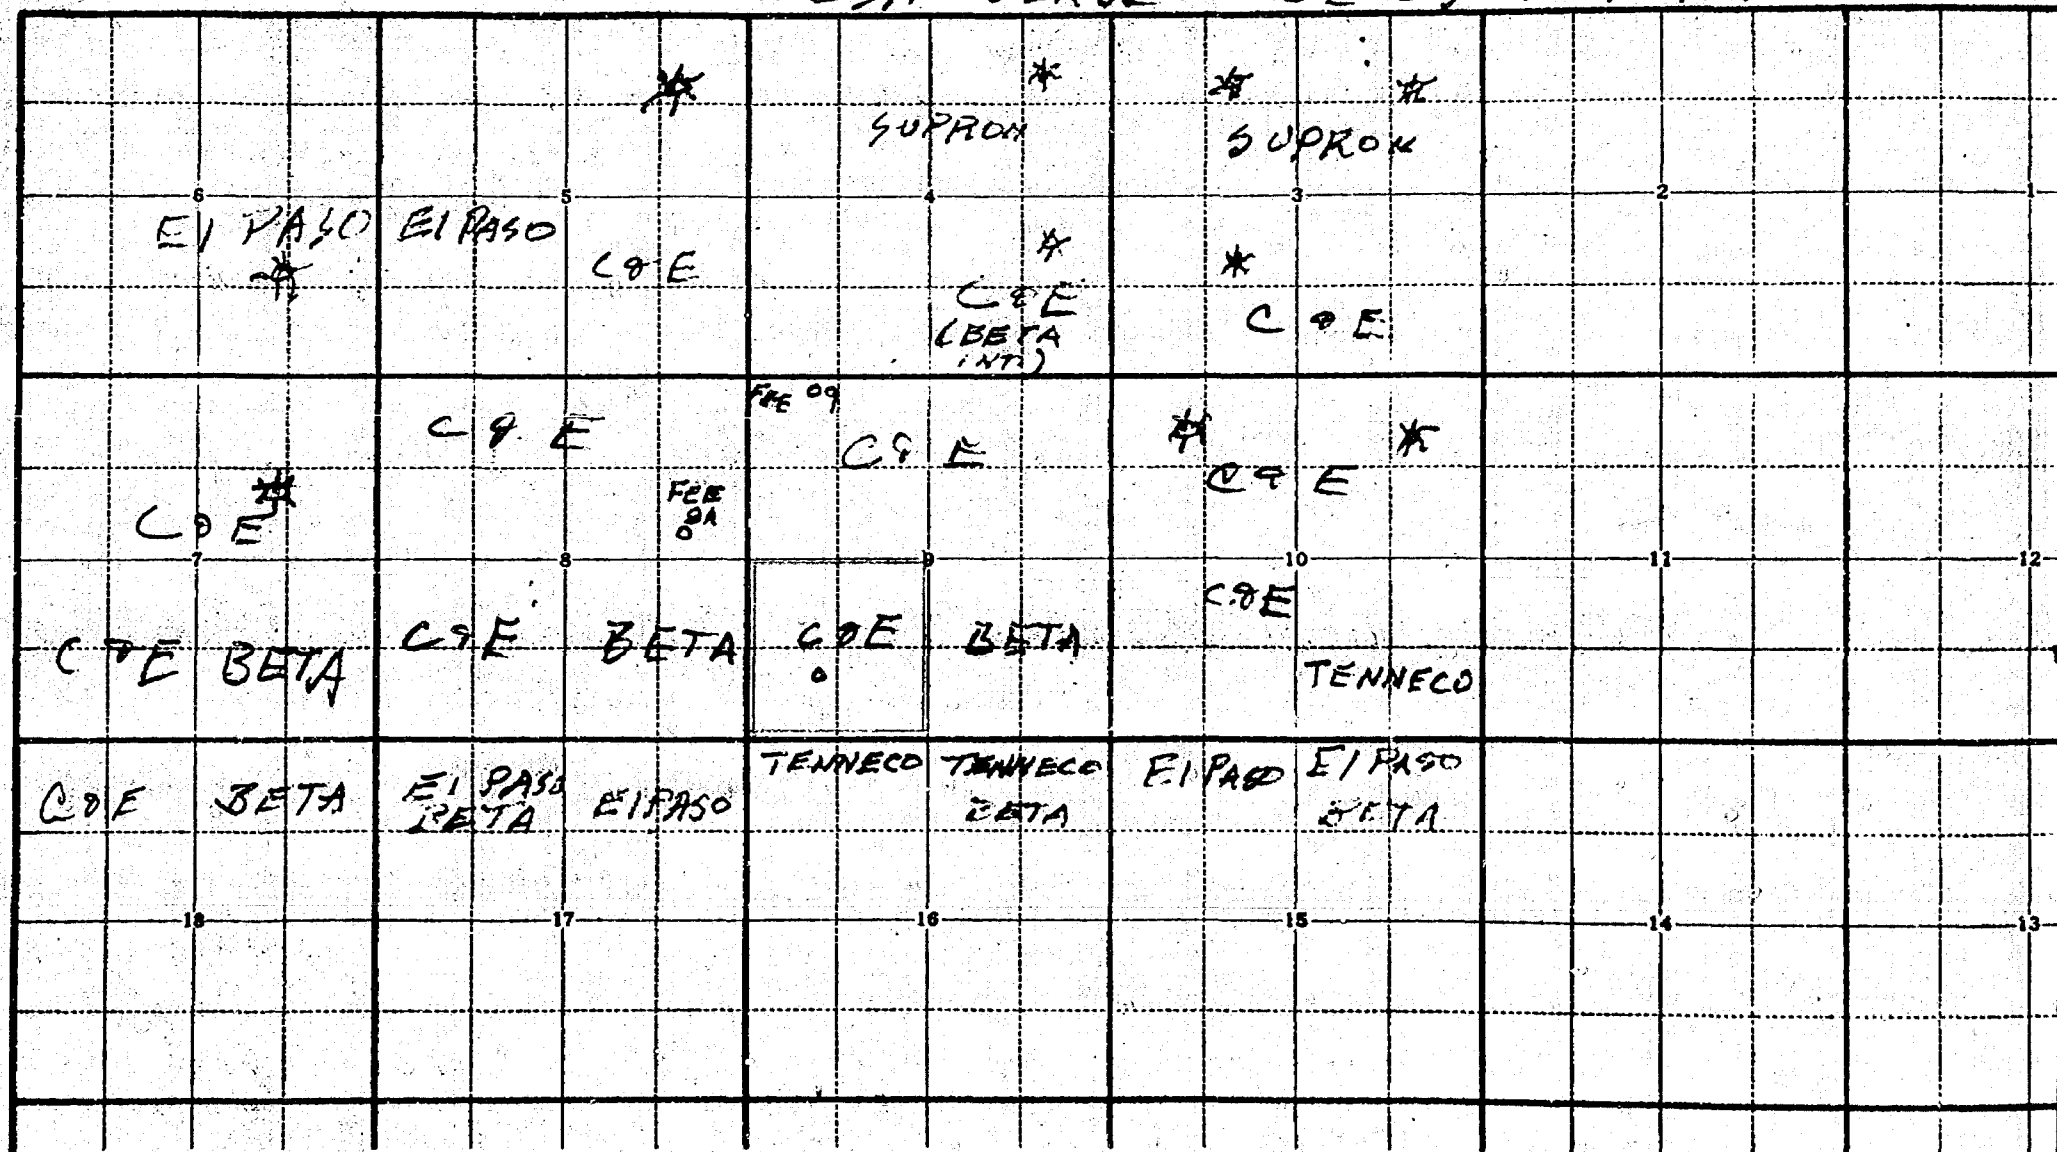 SUPRON
SUPRON
6
5
4
3
2
1
El PASO
El PASO
C&E
C&E
(BETA
INT.)
C&E
FEE 09
C&E
C&E
C&E
FEE
8A
C&E
7
8
9
10
11
12
C&E
C&E
BETA
C&E
BETA
C&E
BETA
TENNECO
C&E
BETA
El PASO
BETA
El PASO
TENNECO
TENNECO
BETA
El PASO
El PASO
BETA
18
17
16
15
14
13